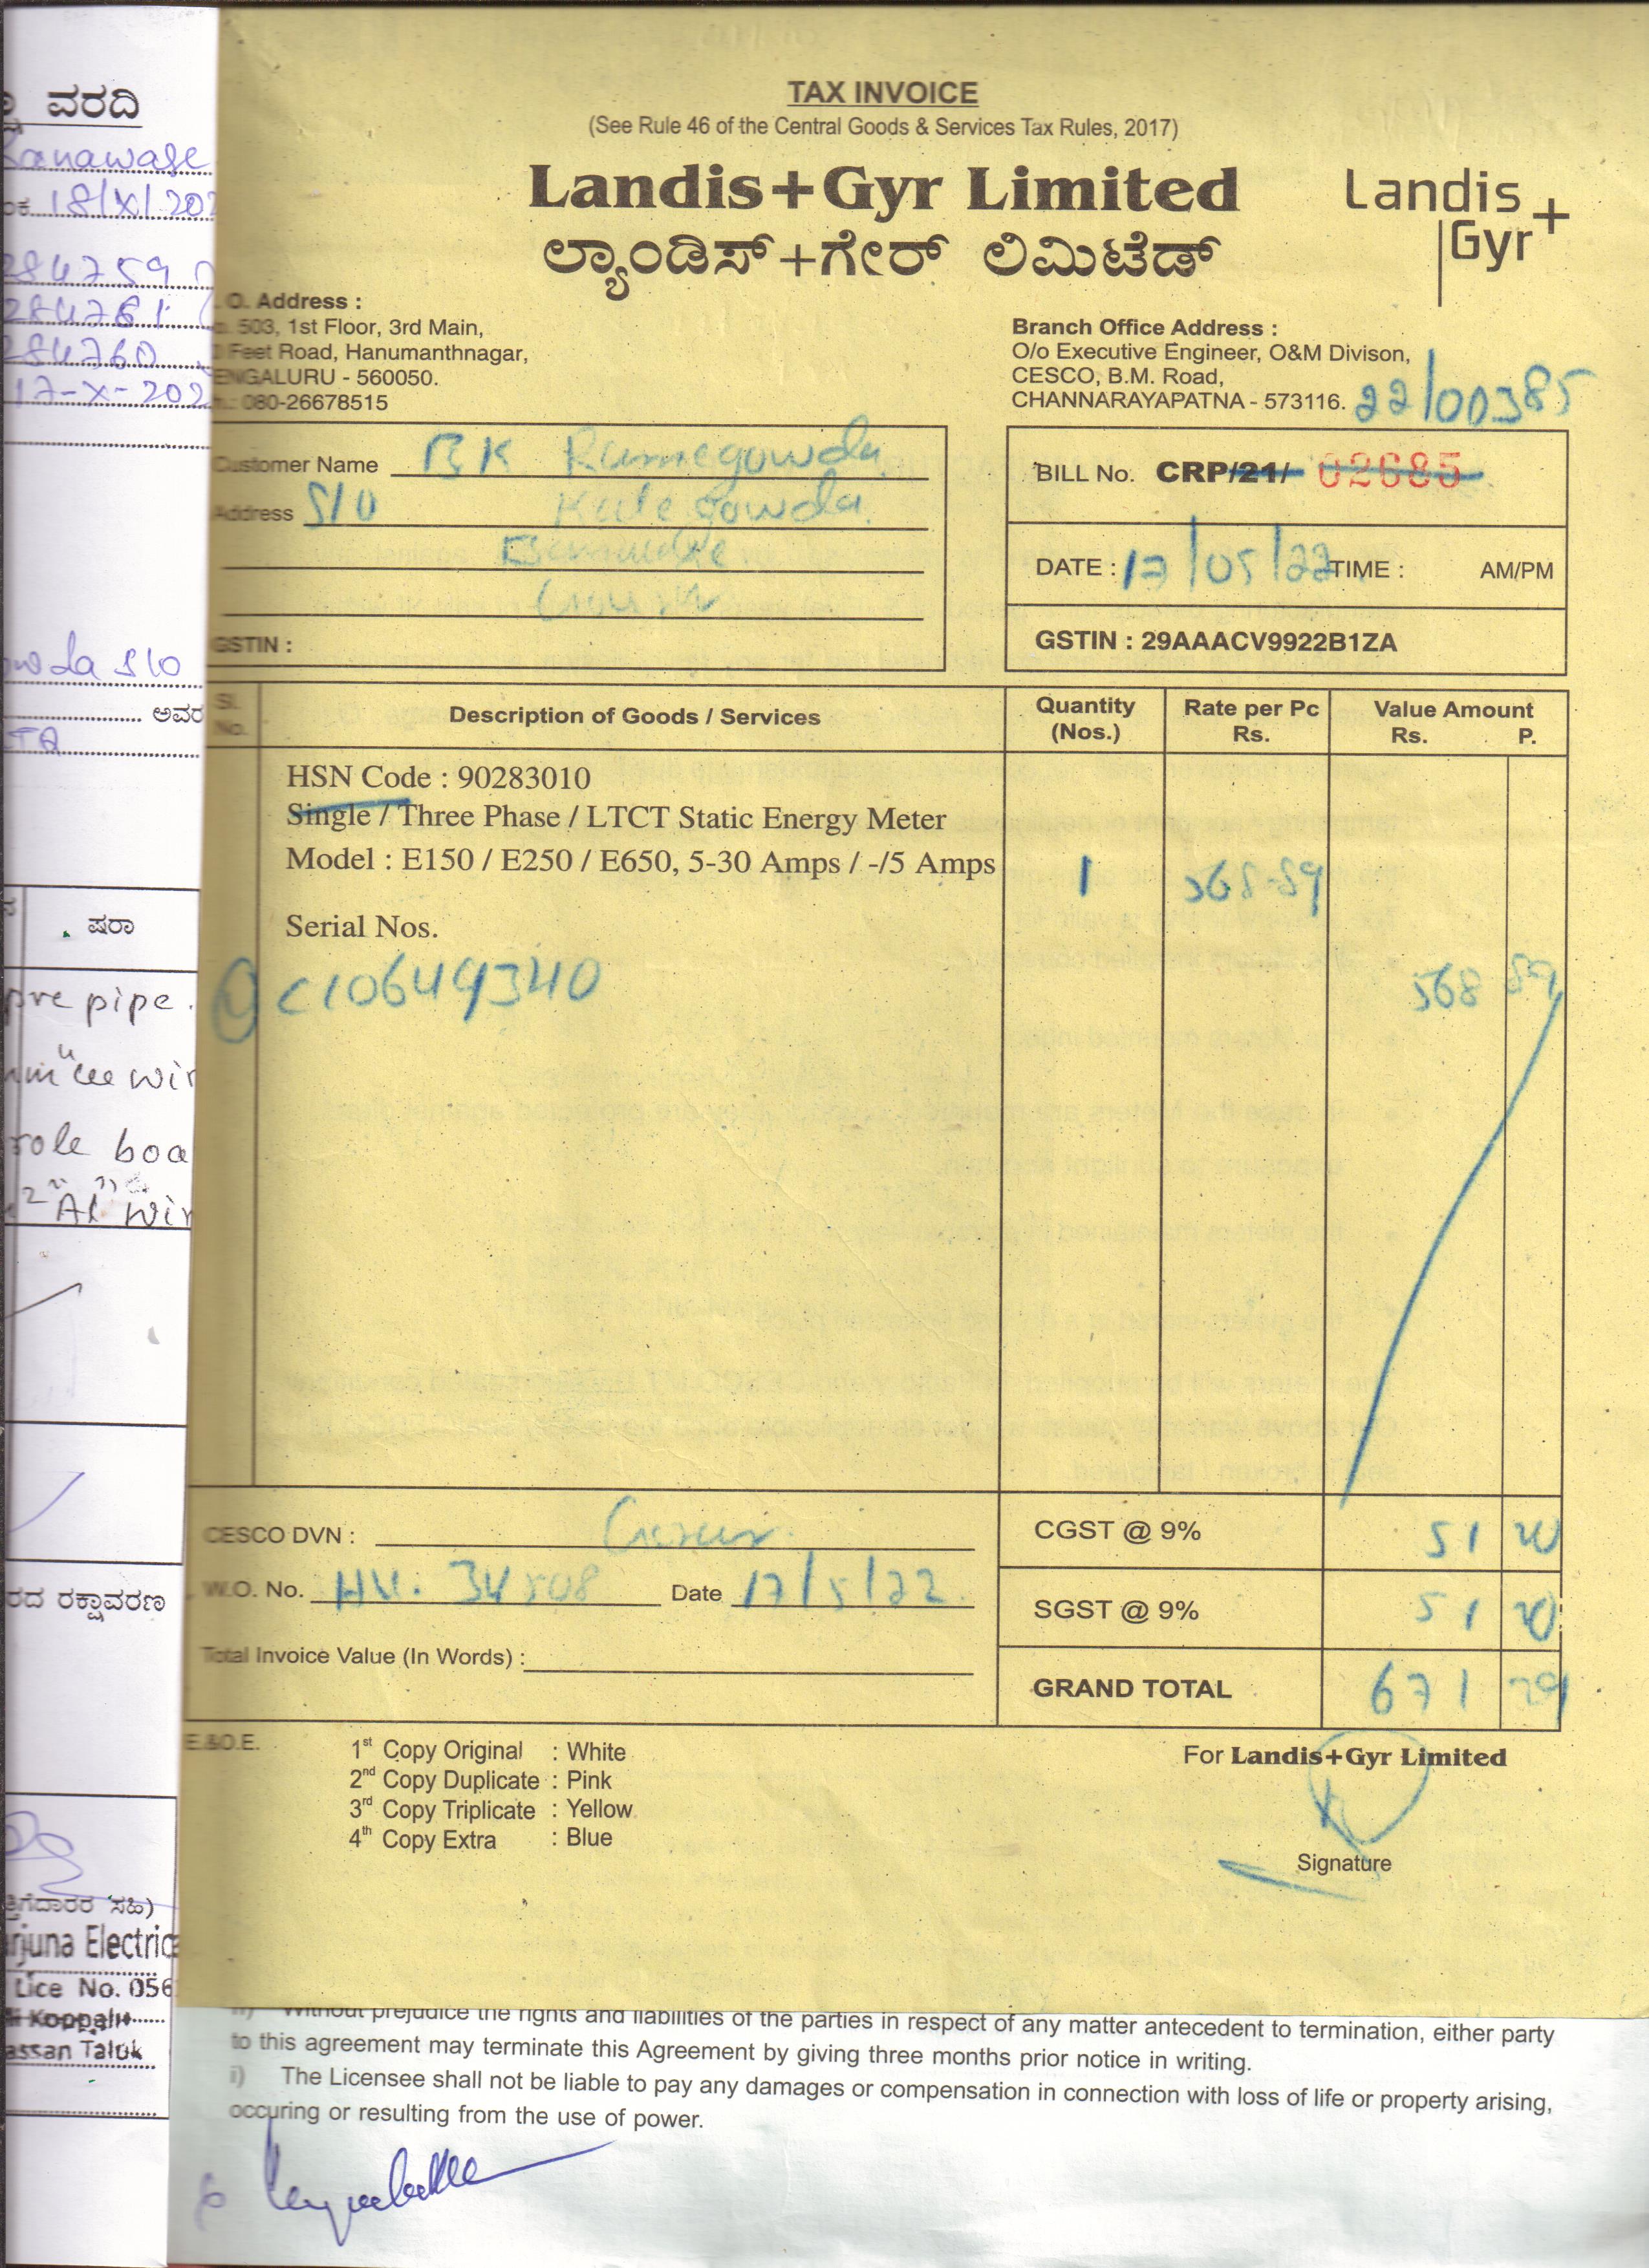 ವರದಿ
18/X/202
284759
284761
284760
17-X-202
wda S/o
ಅವರ
ಷರಾ
pvc pipe.
wir
role boa
"Al" wir
ರದ ರಕ್ಷಾವರಣ
ಸಹಿ)
rjuna Electric
Lice No. 056
Koppalu
assan Taluk
TAX INVOICE
(See Rule 46 of the Central Goods & Services Tax Rules, 2017)
Landis+Gyr Limited
ಲ್ಯಾಂಡಿಸ್+ಗೇರ್ ಲಿಮಿಟೆಡ್
Landis+
Gyr
O. Address :
503, 1st Floor, 3rd Main,
Feet Road, Hanumanthnagar,
ENGALURU - 560050.
080-26678515
Branch Office Address :
O/o Executive Engineer, O&M Divison,
CESCO, B.M. Road,
CHANNARAYAPATNA - 573116. 22/00385
Customer Name BK Ramegowda
Address S/O Kalegowda
GSTIN :
BILL No. CRP/21/ 02685
DATE : 17/05/22 TIME : AM/PM
GSTIN : 29AAACV9922B1ZA
Sl. No. Description of Goods / Services Quantity (Nos.) Rate per Pc Rs. Value Amount Rs. P.
HSN Code : 90283010
Single / Three Phase / LTCT Static Energy Meter
Model : E150 / E250 / E650, 5-30 Amps / -/5 Amps 1 568-89
Serial Nos.
C10649340 568 89
CESCO DVN :
CGST @ 9% 51 20
W.O. No. 34508 Date 17/5/22
SGST @ 9% 51 20
Total Invoice Value (In Words) :
GRAND TOTAL 671 29
E.&O.E.
1st Copy Original : White
2nd Copy Duplicate : Pink
3rd Copy Triplicate : Yellow
4th Copy Extra : Blue
For Landis+Gyr Limited
Signature
Without prejudice the rights and liabilities of the parties in respect of any matter antecedent to termination, either party
to this agreement may terminate this Agreement by giving three months prior notice in writing.
i) The Licensee shall not be liable to pay any damages or compensation in connection with loss of life or property arising,
occuring or resulting from the use of power.